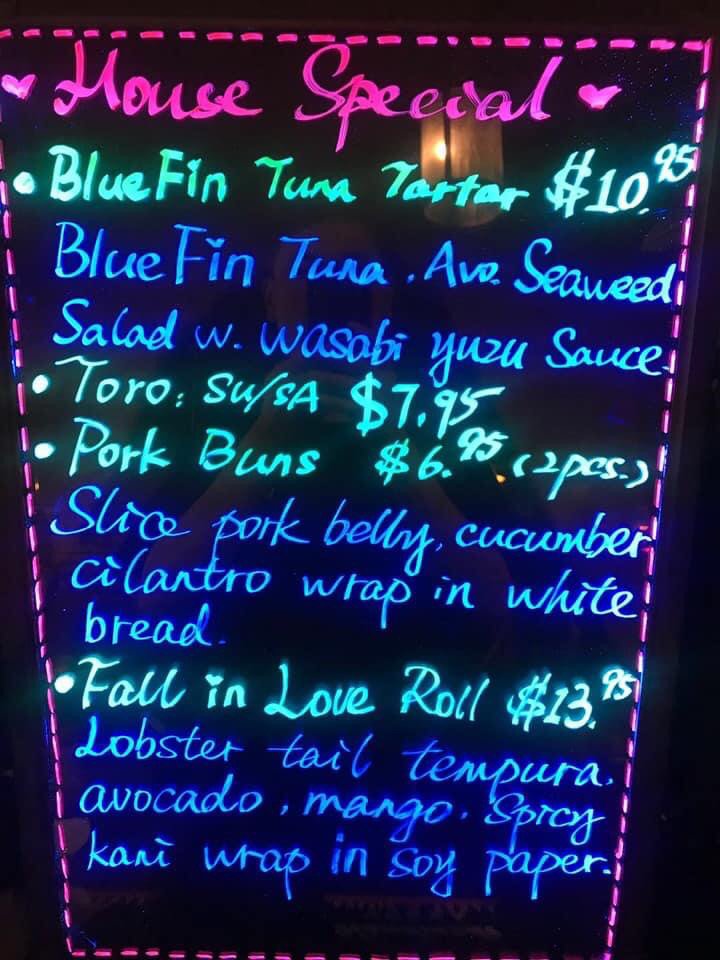 ♥ House Special ♥
• Blue Fin Tuna Tartar $10.95
Blue Fin Tuna, Avo. Seaweed
Salad w. wasabi yuzu Sauce.
• Toro: SU/SA $7.95
• Pork Buns $6.95 (2pcs.)
Slice pork belly, cucumber
cilantro wrap in white
bread.
• Fall in Love Roll $13.95
Lobster tail tempura,
avocado, mango. Spicy
kani wrap in soy paper.